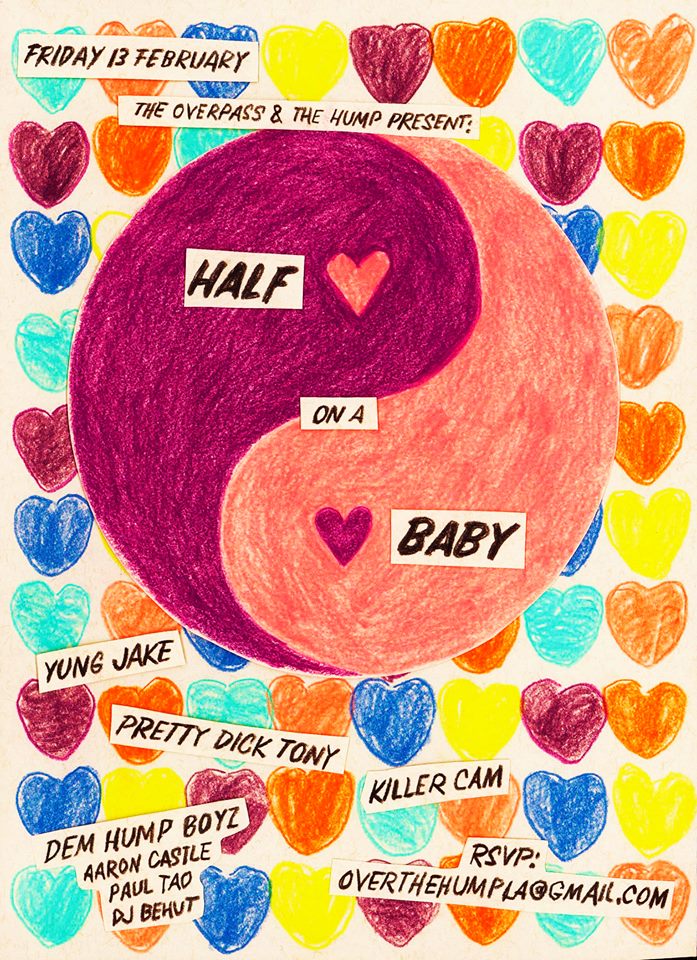 FRIDAY 13 FEBRUARY
THE OVERPASS & THE HUMP PRESENT:
HALF
ON A
BABY
YUNG JAKE
PRETTY DICK TONY
KILLER CAM
DEM HUMP BOYZ
AARON CASTLE
PAUL TAO
DJ BEHUT
RSVP:
OVERTHEHUMPLA@GMAIL.COM